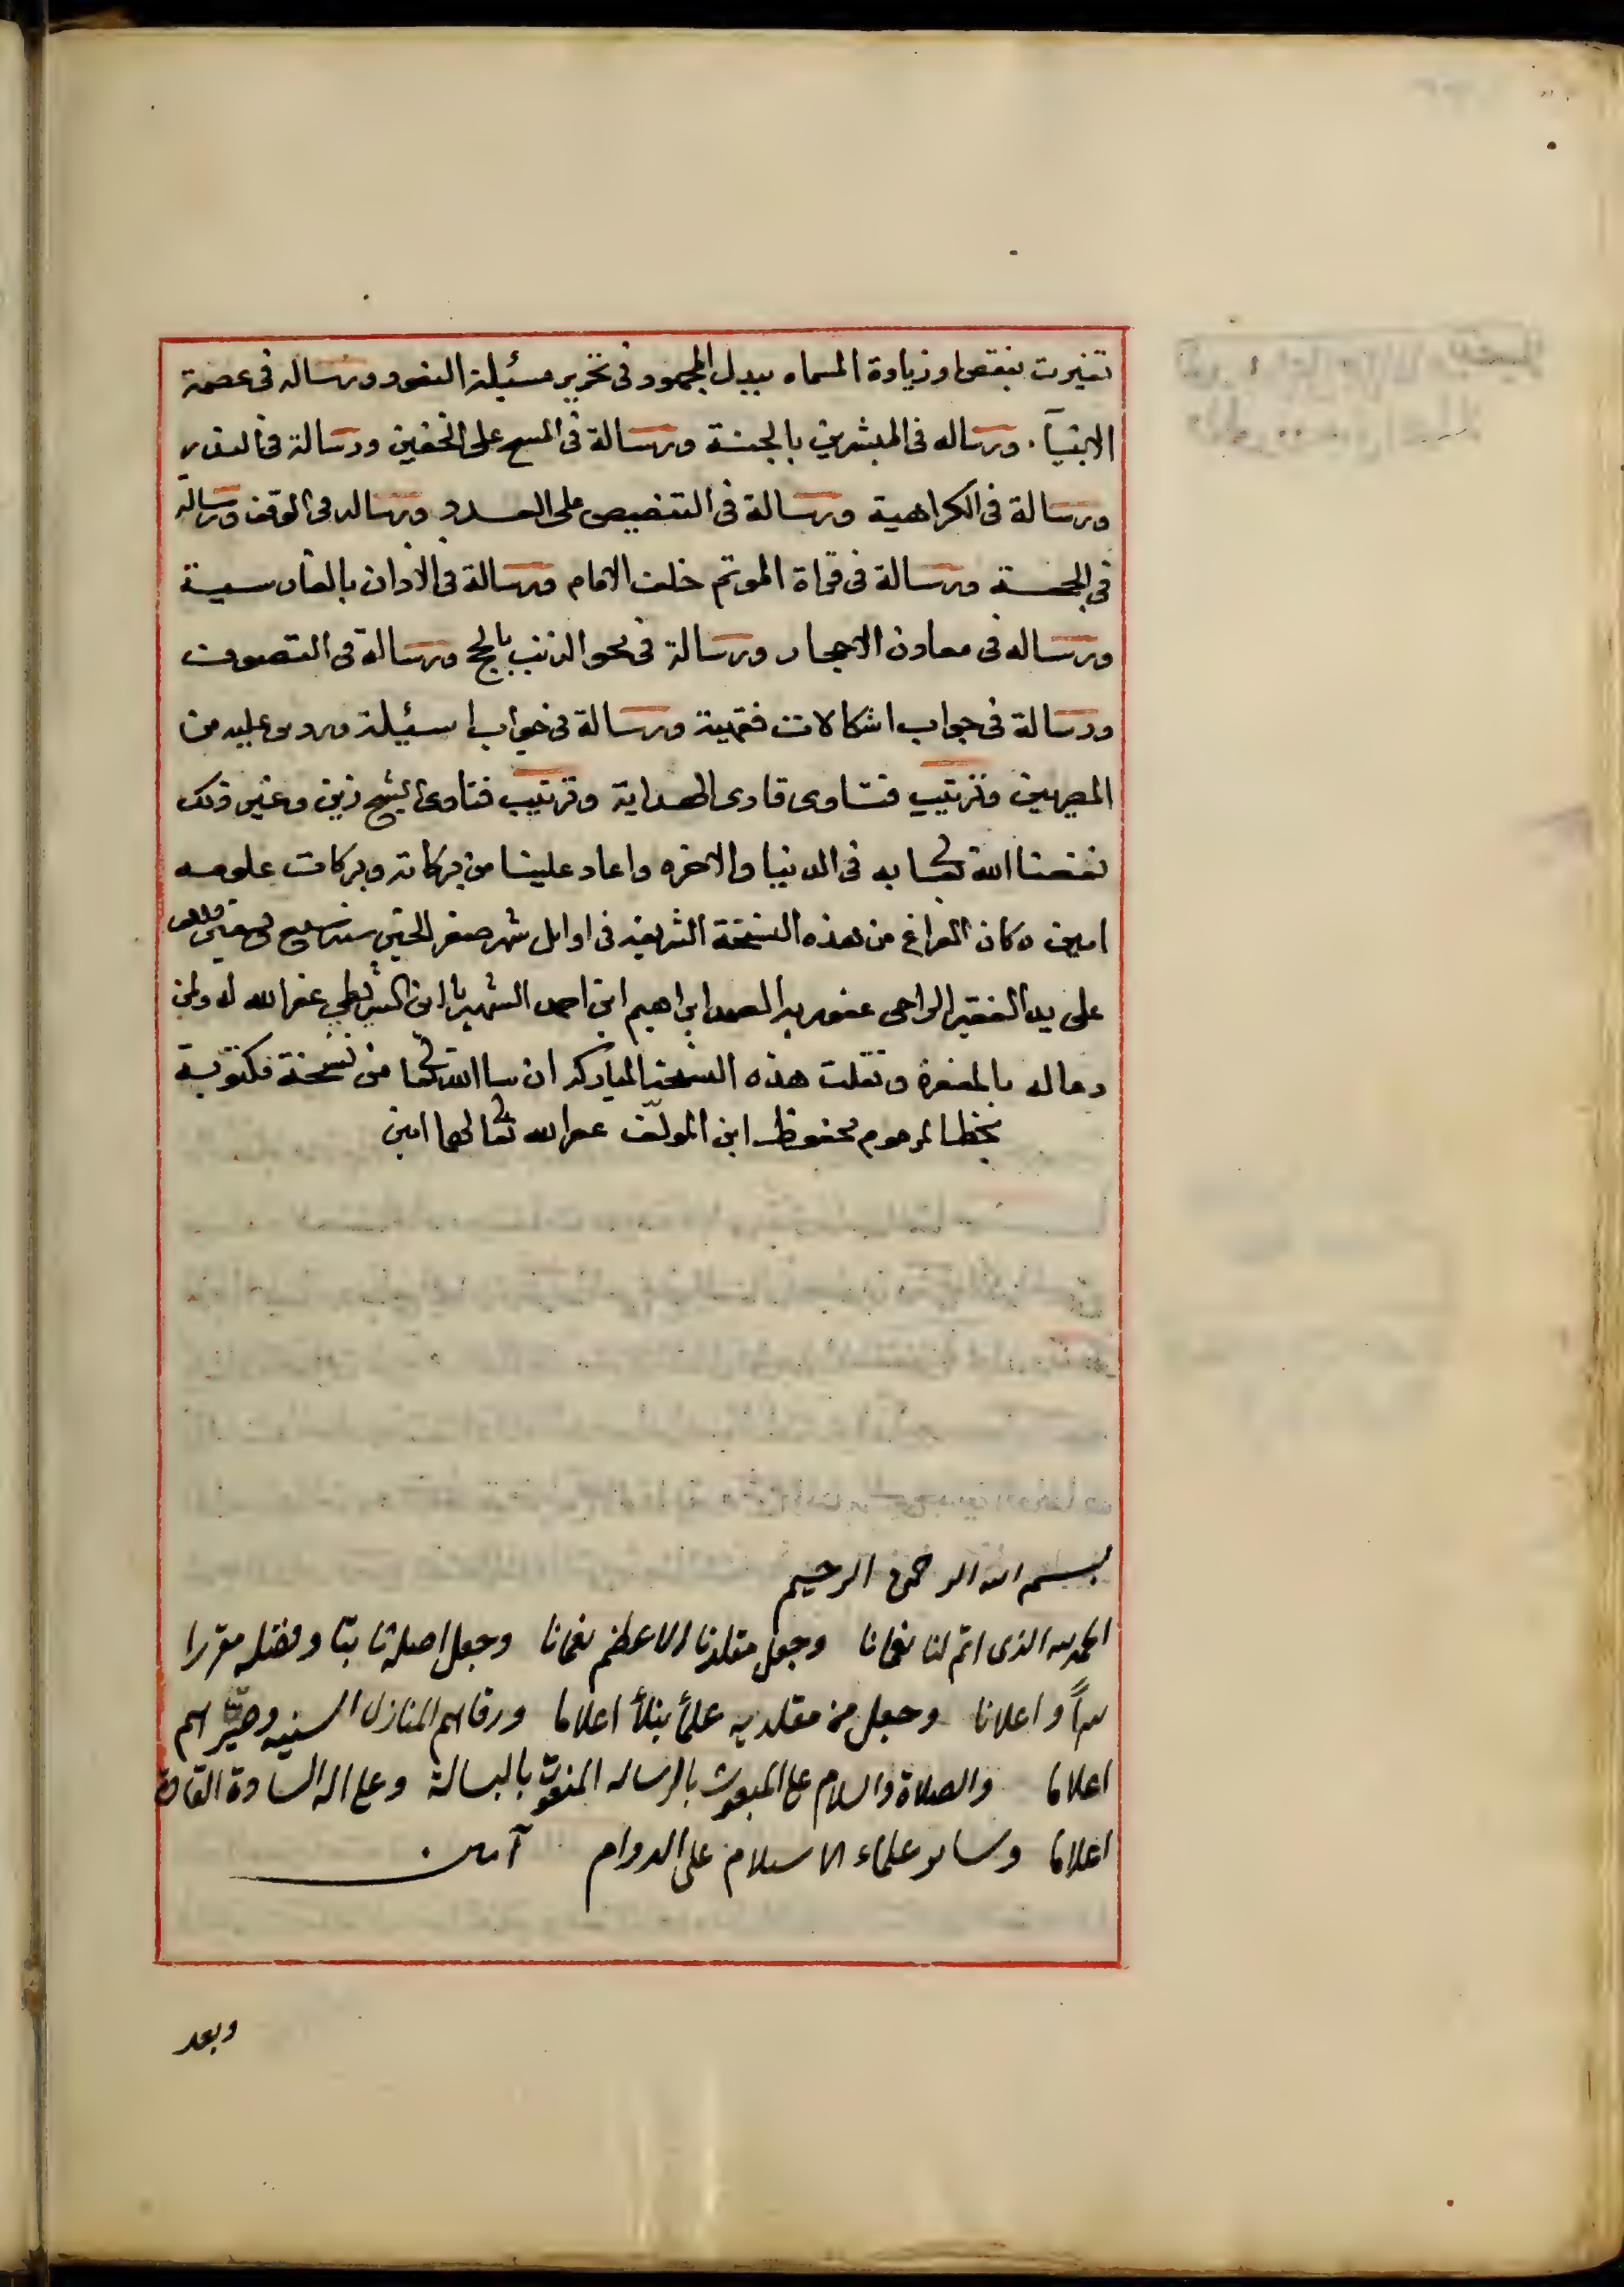 تغيرت بنقص او زيادة المسماه ببدل المجهود في تحرير مسئيلة النقود ورساله في عصمة
الانبيآ. ورساله في المبشرين بالجنة ورسالة في المسح على الخفين ورسالة في النذر
ورسالة في الكراهية ورسالة في التنصيص على العدد ورساله في الوقف ورسالة
في الجـ ورسالة في قراة الموتم خلف الامام ورسالة في الاذان بالفارسية
ورساله في معادن الاحجار ورسالة في محو الذنب بالحج ورسالة في التصوف
ورسالة في جواب اشكالات فقهية ورسالة في جواب اسئيلة وردت عليه من
المصريين وترتيب فتاوى قارى الهداية وترتيب فتاوى الشيخ زين وغير ذلك
نفعنا الله تعا به في الدنيا والاخره واعاد علينا من بركاته وبركات علومه
امين وكان الفراغ من هذه النسخة الشريفه في اوايل شهر صفر الخير سنة
على يد الفقير الراجى عفو ربه الصمد ابراهيم ابن احمد الشهير بابن عفر الله له ولمن
دعا له بالمغفرة ونقلت هذه النسخة المباركه ان شا الله تعا من نسخة مكتوبة
بخط المرحوم محفوظ ابن المولف عفر الله تعالى لهما امين
بسم الله الرحمن الرحيم
الحمد لله الذى اتم لنا نعمانا وجعل مقلدنا الاعظم نعمانا وجعل اصله ثابتا وفضله مقررا
سراً واعلانا وجعل من مقلديه علمأ نبلأ اعلاما ورقا لهم المنازل السنيه وصيرهم
اعلاما والصلاة والسلام على المبعوث بالرساله المنعوت بالبسالة وعلى اله السادة القادة
اعلاما وساير علماء الاسلام على الدوام آمين
وبعد